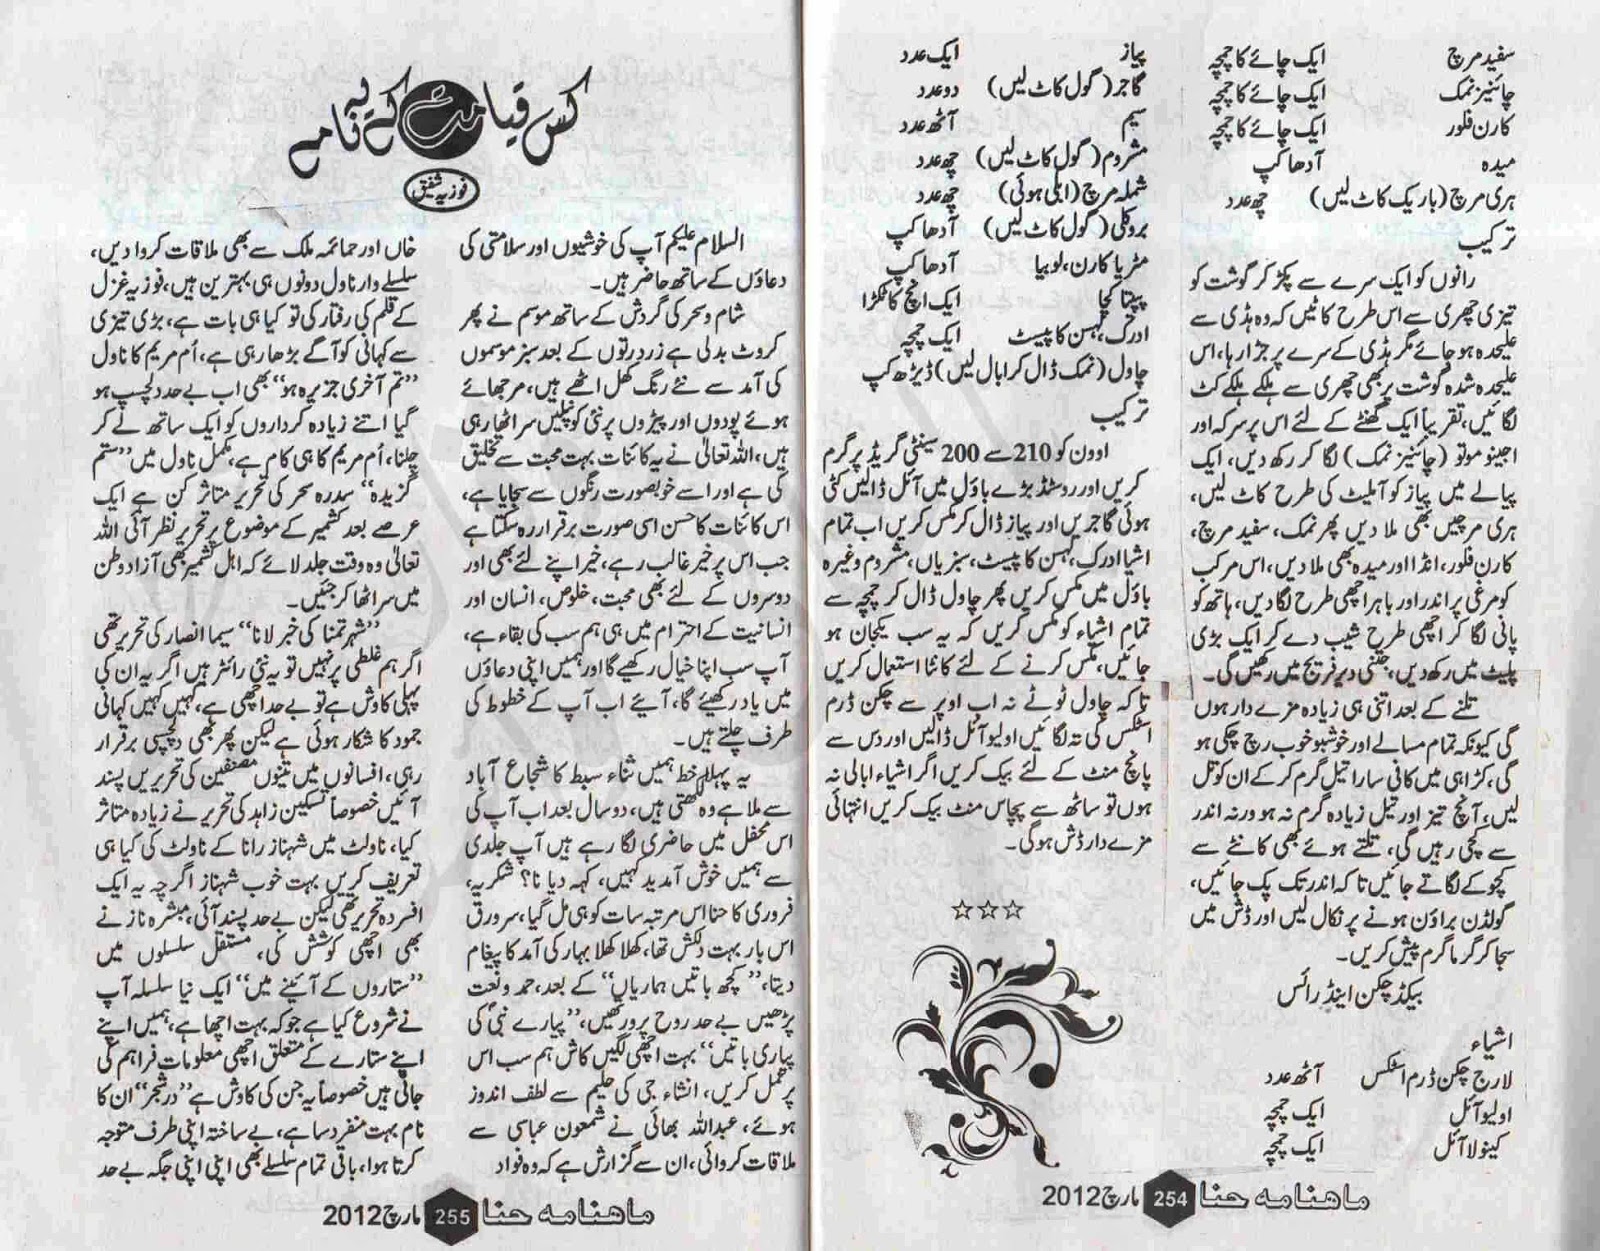 سفید مرچ ایک چائے کا چمچہ
چائنیز نمک ایک چائے کا چمچہ
کارن فلور ایک چائے کا چمچہ
میدہ آدھا کپ
ہری مرچ (باریک کاٹ لیں) چھ عدد
ترکیب
رانوں کو ایک سرے سے پکڑ کر گوشت کو
تیزی چھری سے اس طرح کاٹیں کہ وہ ہڈی سے
علیحدہ ہو جائے مگر ہڈی کے سرے پر جڑا رہا، اس
علیحدہ شدہ گوشت پر بھی چھری سے ہلکے ہلکے کٹ
لگائیں، تقریباً ایک گھنٹے کے لئے اس پر سرکہ اور
اجینو موتو (چائنیز نمک) لگا کر رکھ دیں، ایک
پیالے میں پیاز کو آملیٹ کی طرح کاٹ لیں،
ہری مرچیں بھی ملا دیں پھر نمک، سفید مرچ،
کارن فلور، انڈا اور میدہ بھی ملا دیں، اس مرکب
کو مرغی پر اندر اور باہر اچھی طرح لگا دیں، ہاتھ کو
پانی لگا کر اچھی طرح شیپ دے کر ایک بڑی
پلیٹ میں رکھ دیں، جتنی دیر فریج میں رکھیں گی۔
تلنے کے بعد اتنی ہی زیادہ مزے دار ہوں
گی کیونکہ تمام مسالے اور خوشبو خوب رچ چکی ہو
گی، کڑاہی میں کافی سارا تیل گرم کر کے ان کو تل
لیں، آنچ تیز اور تیل زیادہ گرم نہ ہو ورنہ اندر
سے کچی رہیں گی، تلتے ہوئے بھی کانٹے سے
کچوکے لگاتے جائیں تاکہ اندر تک پک جائیں،
گولڈن براؤن ہونے پر نکال لیں اور ڈش میں
سجا کر گرما گرم پیش کریں۔
بیکڈ چکن اینڈ رائس
اشیاء
لارج چکن ڈرم اسٹکس آٹھ عدد
اولیو آئل ایک چمچہ
کینولا آئل ایک چمچہ
پیاز ایک عدد
گاجر (گول کاٹ لیں) دو عدد
سیم آٹھ عدد
مشروم (گول کاٹ لیں) چھ عدد
شملہ مرچ (ابلی ہوئی) چھ عدد
بروکلی (گول کاٹ لیں) آدھا کپ
مٹر یا کارن، لوبیا آدھا کپ
پپتا کچا ایک انچ کا ٹکڑا
ادرک، لہسن کا پیسٹ ایک چمچہ
چاول (نمک ڈال کر ابال لیں) ڈیڑھ کپ
ترکیب
اوون کو 210 سے 200 سینٹی گریڈ پر گرم
کریں اور روسٹڈ بڑے باؤل میں آئل ڈالیں کٹی
ہوئی گاجریں اور پیاز ڈال کر مکس کریں اب تمام
اشیا ادرک، لہسن کا پیسٹ، سبزیاں، مشروم وغیرہ
باؤل میں مکس کریں پھر چاول ڈال کر چمچہ سے
تمام اشیاء کو مکس کریں کہ یہ سب یکجان ہو
جائیں، مکس کرنے کے لئے کانٹا استعمال کریں
تاکہ چاول ٹوٹے نہ اب اوپر سے چکن ڈرم
اسٹکس کی تہ لگائیں اولیو آئل ڈالیں اور دس سے
پانچ منٹ کے لئے بیک کریں اگر اشیاء ابالی نہ
ہوں تو ساٹھ سے پچاس منٹ بیک کریں انتہائی
مزے دار ڈش ہوگی۔
☆☆☆
ماہنامہ حنا 254 مارچ 2012
کس قیامت کے یہ نامے
فوزیہ شفیق
السلام علیکم آپ کی خوشیوں اور سلامتی کی
دعاؤں کے ساتھ حاضر ہیں۔
شام و سحر کی گردش کے ساتھ موسم نے پھر
کروٹ بدلی ہے زرد رتوں کے بعد سبز موسموں
کی آمد سے نئے رنگ کھل اٹھے ہیں، مرجھائے
ہوئے پودوں اور پیڑوں پر نئی کونپلیں سر اٹھا رہی
ہیں، اللہ تعالیٰ نے یہ کائنات بہت محبت سے تخلیق
کی ہے اور اسے خوبصورت رنگوں سے سجایا ہے،
اس کائنات کا حسن اسی صورت برقرار رہ سکتا ہے
جب اس پر خیر غالب رہے، خیر اپنے لئے بھی اور
دوسروں کے لئے بھی محبت، خلوص، انسان اور
انسانیت کے احترام میں ہی ہم سب کی بقاء ہے،
آپ سب اپنا خیال رکھیے گا اور ہمیں اپنی دعاؤں
میں یاد رکھیئے گا، آیئے اب آپ کے خطوط کی
طرف چلتے ہیں۔
یہ پہلا خط ہمیں ثناء سبط کا شجاع آباد
سے ملا ہے وہ لکھتی ہیں، دو سال بعد اب آپ کی
اس محفل میں حاضری لگا رہے ہیں آپ جلدی
سے ہمیں خوش آمدید کہیں، کہہ دیا نا؟ شکریہ،
فروری کا حنا اس مرتبہ سات کو ہی مل گیا، سرورق
اس بار بہت دلکش تھا، کھلا کھلا بہار کی آمد کا پیغام
دیتا، ”کچھ باتیں ہماریاں“ کے بعد، حمد و نعت
پڑھیں بے حد روح پرور تھیں، ”پیارے نبی کی
پیاری باتیں“ بہت اچھی لگیں کاش ہم سب اس
پر عمل کریں، انشاء جی کی حلیم سے لطف اندوز
ہوئے، عبداللہ بھائی نے شمعون عباسی سے
ملاقات کروائی، ان سے گزارش ہے کہ وہ فواد
خاں اور حمائمہ ملک سے بھی ملاقات کروا دیں،
سلسلے وار ناول دونوں ہی بہترین ہیں، فوزیہ غزل
کے قلم کی رفتار کی تو کیا ہی بات ہے، بڑی تیزی
سے کہانی کو آگے بڑھا رہی ہے، اُم مریم کا ناول
”تم آخری جزیرہ ہو“ بھی اب بے حد دلچسپ ہو
گیا اتنے زیادہ کرداروں کو ایک ساتھ لے کر
چلنا، اُم مریم کا ہی کام ہے، مکمل ناول میں ”ستم
گزیدہ“ سدرہ سحر کی تحریر متاثر کن ہے ایک
عرصے بعد کشمیر کے موضوع پر تحریر نظر آئی اللہ
تعالیٰ وہ وقت جلد لائے کہ اہل کشمیر بھی آزاد وطن
میں سر اٹھا کر جئیں۔
”شہر تمنا کی خبر لانا“ سیما انصار کی تحریر تھی
اگر ہم غلطی پر نہیں تو یہ نئی رائٹر ہیں اگر یہ ان کی
پہلی کاوش ہے تو بے حد اچھی ہے، کہیں کہیں کہانی
جمود کا شکار ہوئی ہے لیکن پھر بھی دلچسپی برقرار
رہی، افسانوں میں تینوں مصنفین کی تحریریں پسند
آئیں خصوصاً تسکین زاہد کی تحریر نے زیادہ متاثر
کیا، ناولٹ میں شہناز رانا کے ناولٹ کی کیا ہی
تعریف کریں بہت خوب شہناز اگرچہ یہ ایک
افسردہ تحریر تھی لیکن بے حد پسند آئی، مبشرہ ناز نے
بھی اچھی کوشش کی، مستقل سلسلوں میں
”ستاروں کے آئینے میں“ ایک نیا سلسلہ آپ
نے شروع کیا ہے جو کہ بہت اچھا ہے، ہمیں اپنے
اپنے ستارے کے متعلق اچھی معلومات فراہم کی
جاتی ہیں خصوصاً یہ جن کی کاوش ہے ”در شجر“ ان کا
نام بہت منفرد سا ہے، بے ساختہ اپنی طرف متوجہ
کرتا ہوا، باقی تمام سلسلے بھی اپنی اپنی جگہ بے حد
ماہنامہ حنا 255 مارچ 2012